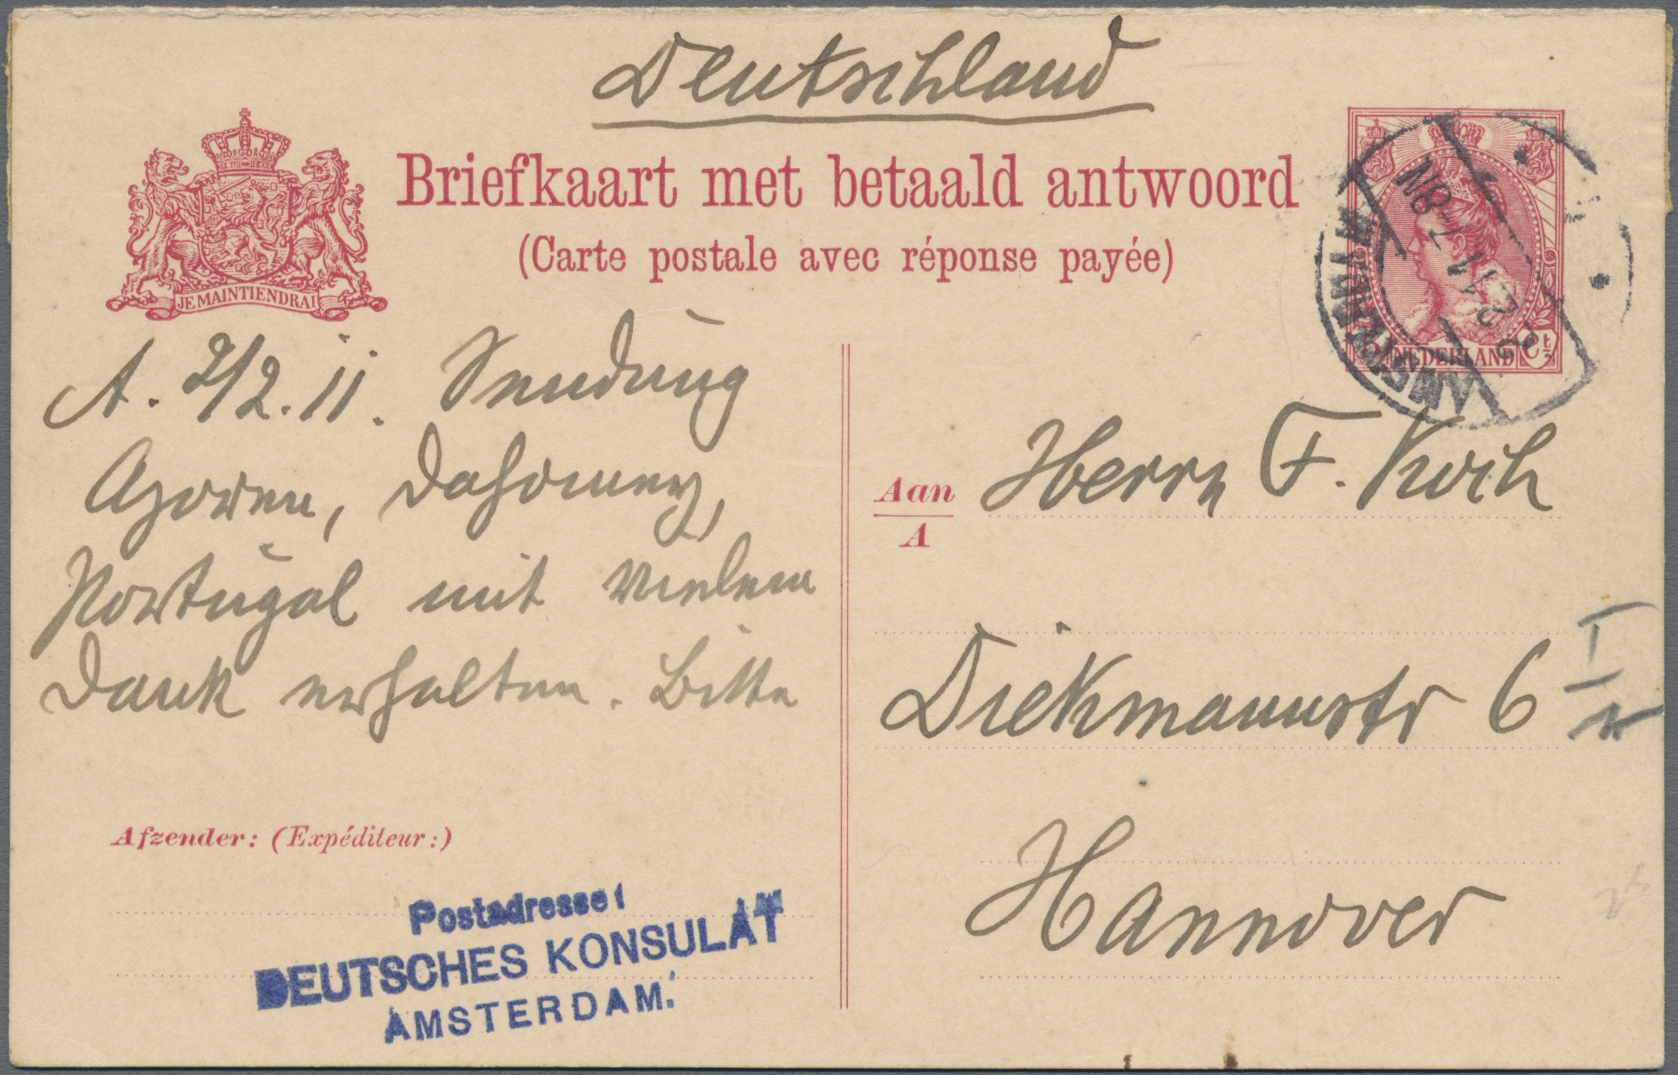 Deutschland
Briefkaart met betaald antwoord
(Carte postale avec réponse payée)
JE MAINTIENDRAI
NEDERLAND
AMSTERDAM
A. 2/2.11. Sendung
Azoren, Dahomey,
Portugal mit vielem
Dank erhalten. Bitte
Aan
A
Herrn F. Koch
Diekmannstr 6 I
Hannover
Afzender: (Expéditeur:)
Postadresse:
DEUTSCHES KONSULAT
AMSTERDAM.